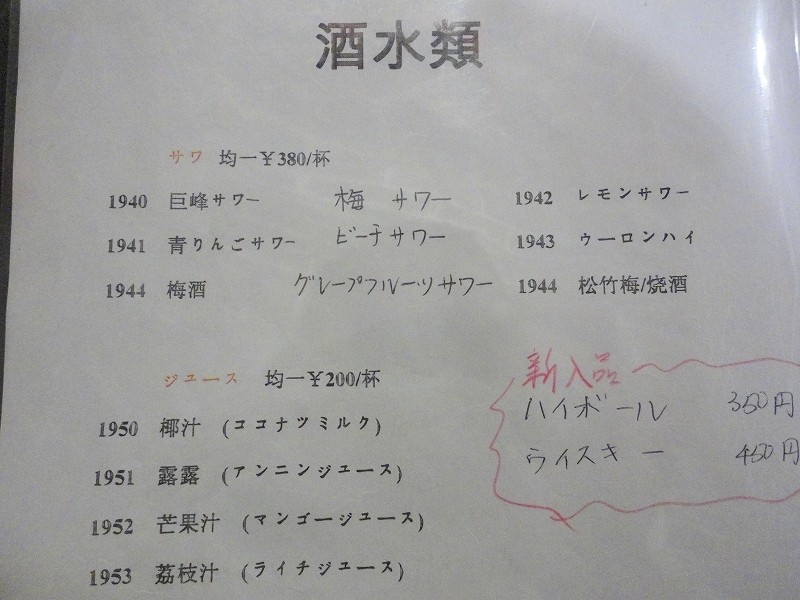 酒水類
サワ 均一￥380/杯
1940 巨峰サワー 梅 サワー 1942 レモンサワー
1941 青りんごサワー ピーチサワー 1943 ウーロンハイ
1944 梅酒 グレープフルーツサワー 1944 松竹梅/烧酒
ジユース 均一￥200/杯
新入品
ハイボール 350円
ウイスキー 450円
1950 椰汁 (ココナツミルク)
1951 露露 (アンニンジユース)
1952 芒果汁 (マンゴージユース)
1953 荔枝汁 (ライチジユース)